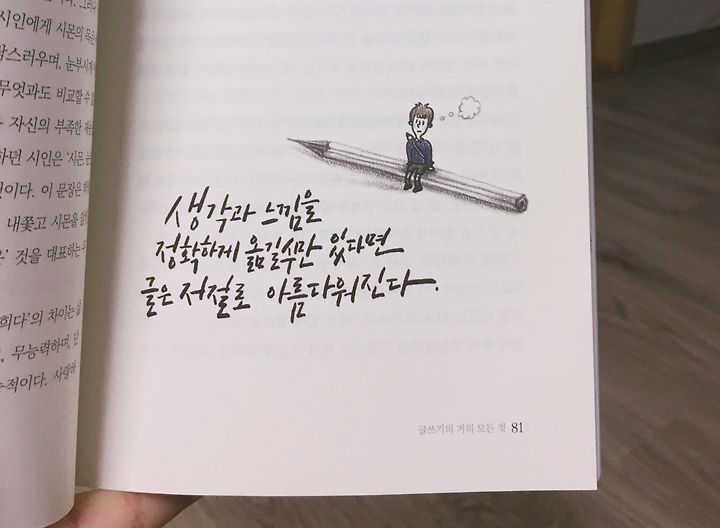 시인에게 시몬의 목은
스러우며, 눈부시게
무엇과도 비교할 수 없
자신의 부족한 재능
하던 시인은 '시몬
이다. 이 문장은
내쫓고 시몬을
것을 대표하는
희다'의 차이는 삶
무능력하며, 단
적이다. 사랑한
생각과 느낌을
정확하게 옮길수만 있다면
글은 저절로 아름다워진다.
글쓰기의 거의 모든 것 81